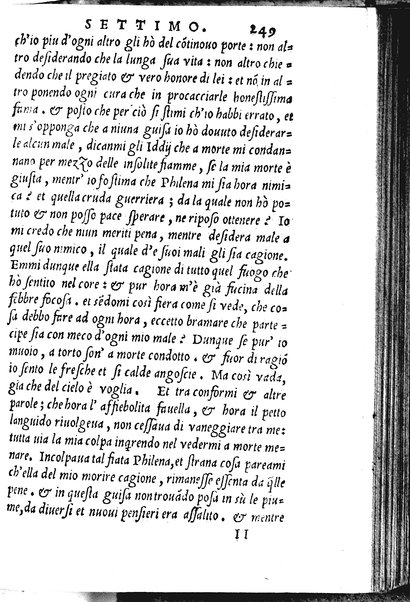 SETTIMO. 249
ch'io piu d'ogni altro gli hò del cõtinouo porte: non al-
tro desiderando che la lunga sua vita: non altro chie-
dendo che il pregiato & vero honore di lei: et nõ in al-
tro ponendo ogni cura che in procacciarle honestissima
fama. & posto che per ciò si stimi ch'io habbi errato, et
mi s'opponga che a niuna guisa io hò douuto desiderar-
le alcun male, dicanmi gli Iddij che a morte mi condan-
nano per mezzo delle insolite fiamme, se la mia morte è
giusta, mentr' io fo stima che Philena mi sia hora nimi-
ca? et quella cruda guerriera; da la quale non hò po-
tuto & non posso pace sperare, ne riposo ottenere? Io
mi credo che niun meriti pena, mentre desidera male a
quel suo nimico, il quale d'e suoi mali gli sia cagione.
Emmi dunque ella stata cagione di tutto quel fuogo che
hò sentito nel core: & pur hora m'è già fucina della
febbre focosa. et sẽdomi così fiera come si vede, che co-
sa debbo fare ad ogni hora, eccetto bramare che parte-
cipe sia con meco d'ogni mio male? Dunque se pur' io
muoio, a torto son' a morte condotto. & fuor di ragiõ
io sento le fresche et sì calde angoscie. Ma così vada,
gia che del cielo è voglia. Et tra conformi & altre
parole; che hora l' affiebolita fauella, & hora il petto
languido riuolgeua, non cessaua di vaneggiare tra me:
tutta uia la mia colpa ingrendo nel vedermi a morte me-
nare. Incolpaua tal fiata Philena, et strana cosa pareami
ch'ella del mio morire cagione, rimanesse essenta da q̃lle
pene. & in questa guisa non trouãdo posa in sù le piu-
me, da diuersi et nuoui pensieri era assalito. & mentre
II